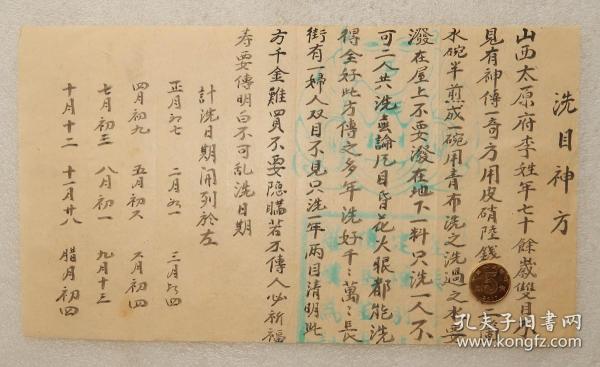 洗目神方
山西太原府李姓年七十餘歲雙目不
見有神傳一奇方用皮硝陸錢
水碗半煎成一碗用青布洗之洗過之水要
潑在屋上不要潑在地下一料只洗一人不
可二人共洗無論凡目昏花火眼都能洗
得全好此方傳之多年洗好千千萬萬長
街有一婦人双目不見只洗一年兩目清明此
方千金難買不要隐瞞若不傳人必祈福
寿要傳明白不可乱洗日期
計洗日期開列於左
正月初七 二月初一 三月初四
四月初九 五月初久 六月初四
七月初三 八月初一 九月十三
十月十二 十一月廿八 腊月初四
孔夫子旧書网
www.kongfz.com